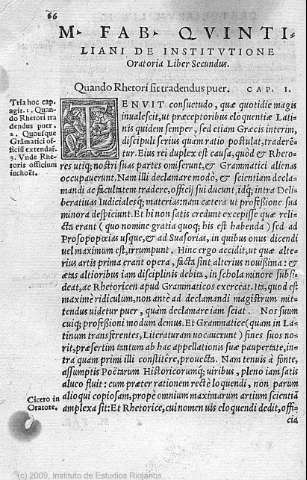 66
M. FAB. QVINTI-
LIANI DE INSTITVTIONE
Oratoria Liber Secundus.
Quando Rhetori sit tradendus puer. CAP. I.
Tria hoc cap.
agit. 1. Quan-
do Rhetori tra
dendus puer.
2. Quousque
Grãmatici offi-
cii extendat.
3. Vnde Rhe-
toris officium
inchoët.
TENVIT consuetudo, quæ quotidie magis
inualescit, ut præceptoribus eloquentiæ Lati-
nis quidem semper, sed etiam Græcis interim,
discipuli serius quàm ratio postulat, traderẽ-
tur. Eius rei duplex est causa, quòd & Rheto-
res utiq; nostri suas partes omiserunt, & Grammatici alienas
occupauerunt. Nam & illi declamare modò, & scientiam declamã-
di ac facultatem tradere, officij sui ducunt, idq; intra Deli-
beratiuas Iudicialesq; materias: nam cætera ut professione sua
minora despiciunt. Et hi non satis credunt excepisse quæ relí-
cta erant (quo nomine gratia quoq; his est habenda) sed ad
Prosopopœias usque, & ad Suasorias, in quibus onus dicendi
uel maximum est, irrumpunt. Hinc ergo accidit, ut quæ alte-
rius artis prima erant opera, facta sint alterius nouissima: et
ætas altioribus iam disciplinis debita, in schola minore subsi-
deat, ac Rhetoricen apud Grammaticos exerceat. Ita, quod est
maximè ridiculum, non antè ad declamandi magistrum mit-
tendus uidetur puer, quàm declamare iam sciat. Nos suum
cuiq; professioni modum demus. Et Grammatice (quam in La-
tinum transferentes, Literaturam uocauerunt) fines suos no-
rit, præsertim tantum ab hac appellationis suæ paupertate, in-
tra quam primi illi constitêre, prouecta. Nam tenuis à fonte,
assumptis Poëtarum Historicorumq; uiribus, pleno iam satis
alueo fluit: cum præter rationem rectè loquendi, non parum
alioqui copiosam, propè omnium maximarum artium scientiã
amplexa sit: Et Rhetorice, cui nomen uis eloquendi dedit, offi-
Cicero in
Oratore.
cia
(c) 2009, Instituto de Estudios Riojanos